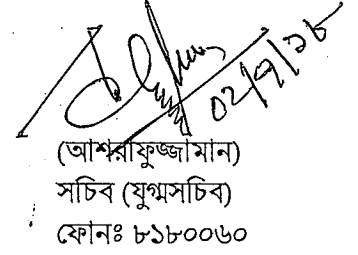 (আশরাফুজ্জামান)
সচিব (যুগ্মসচিব)
ফোনঃ ৮১৮০০৬০